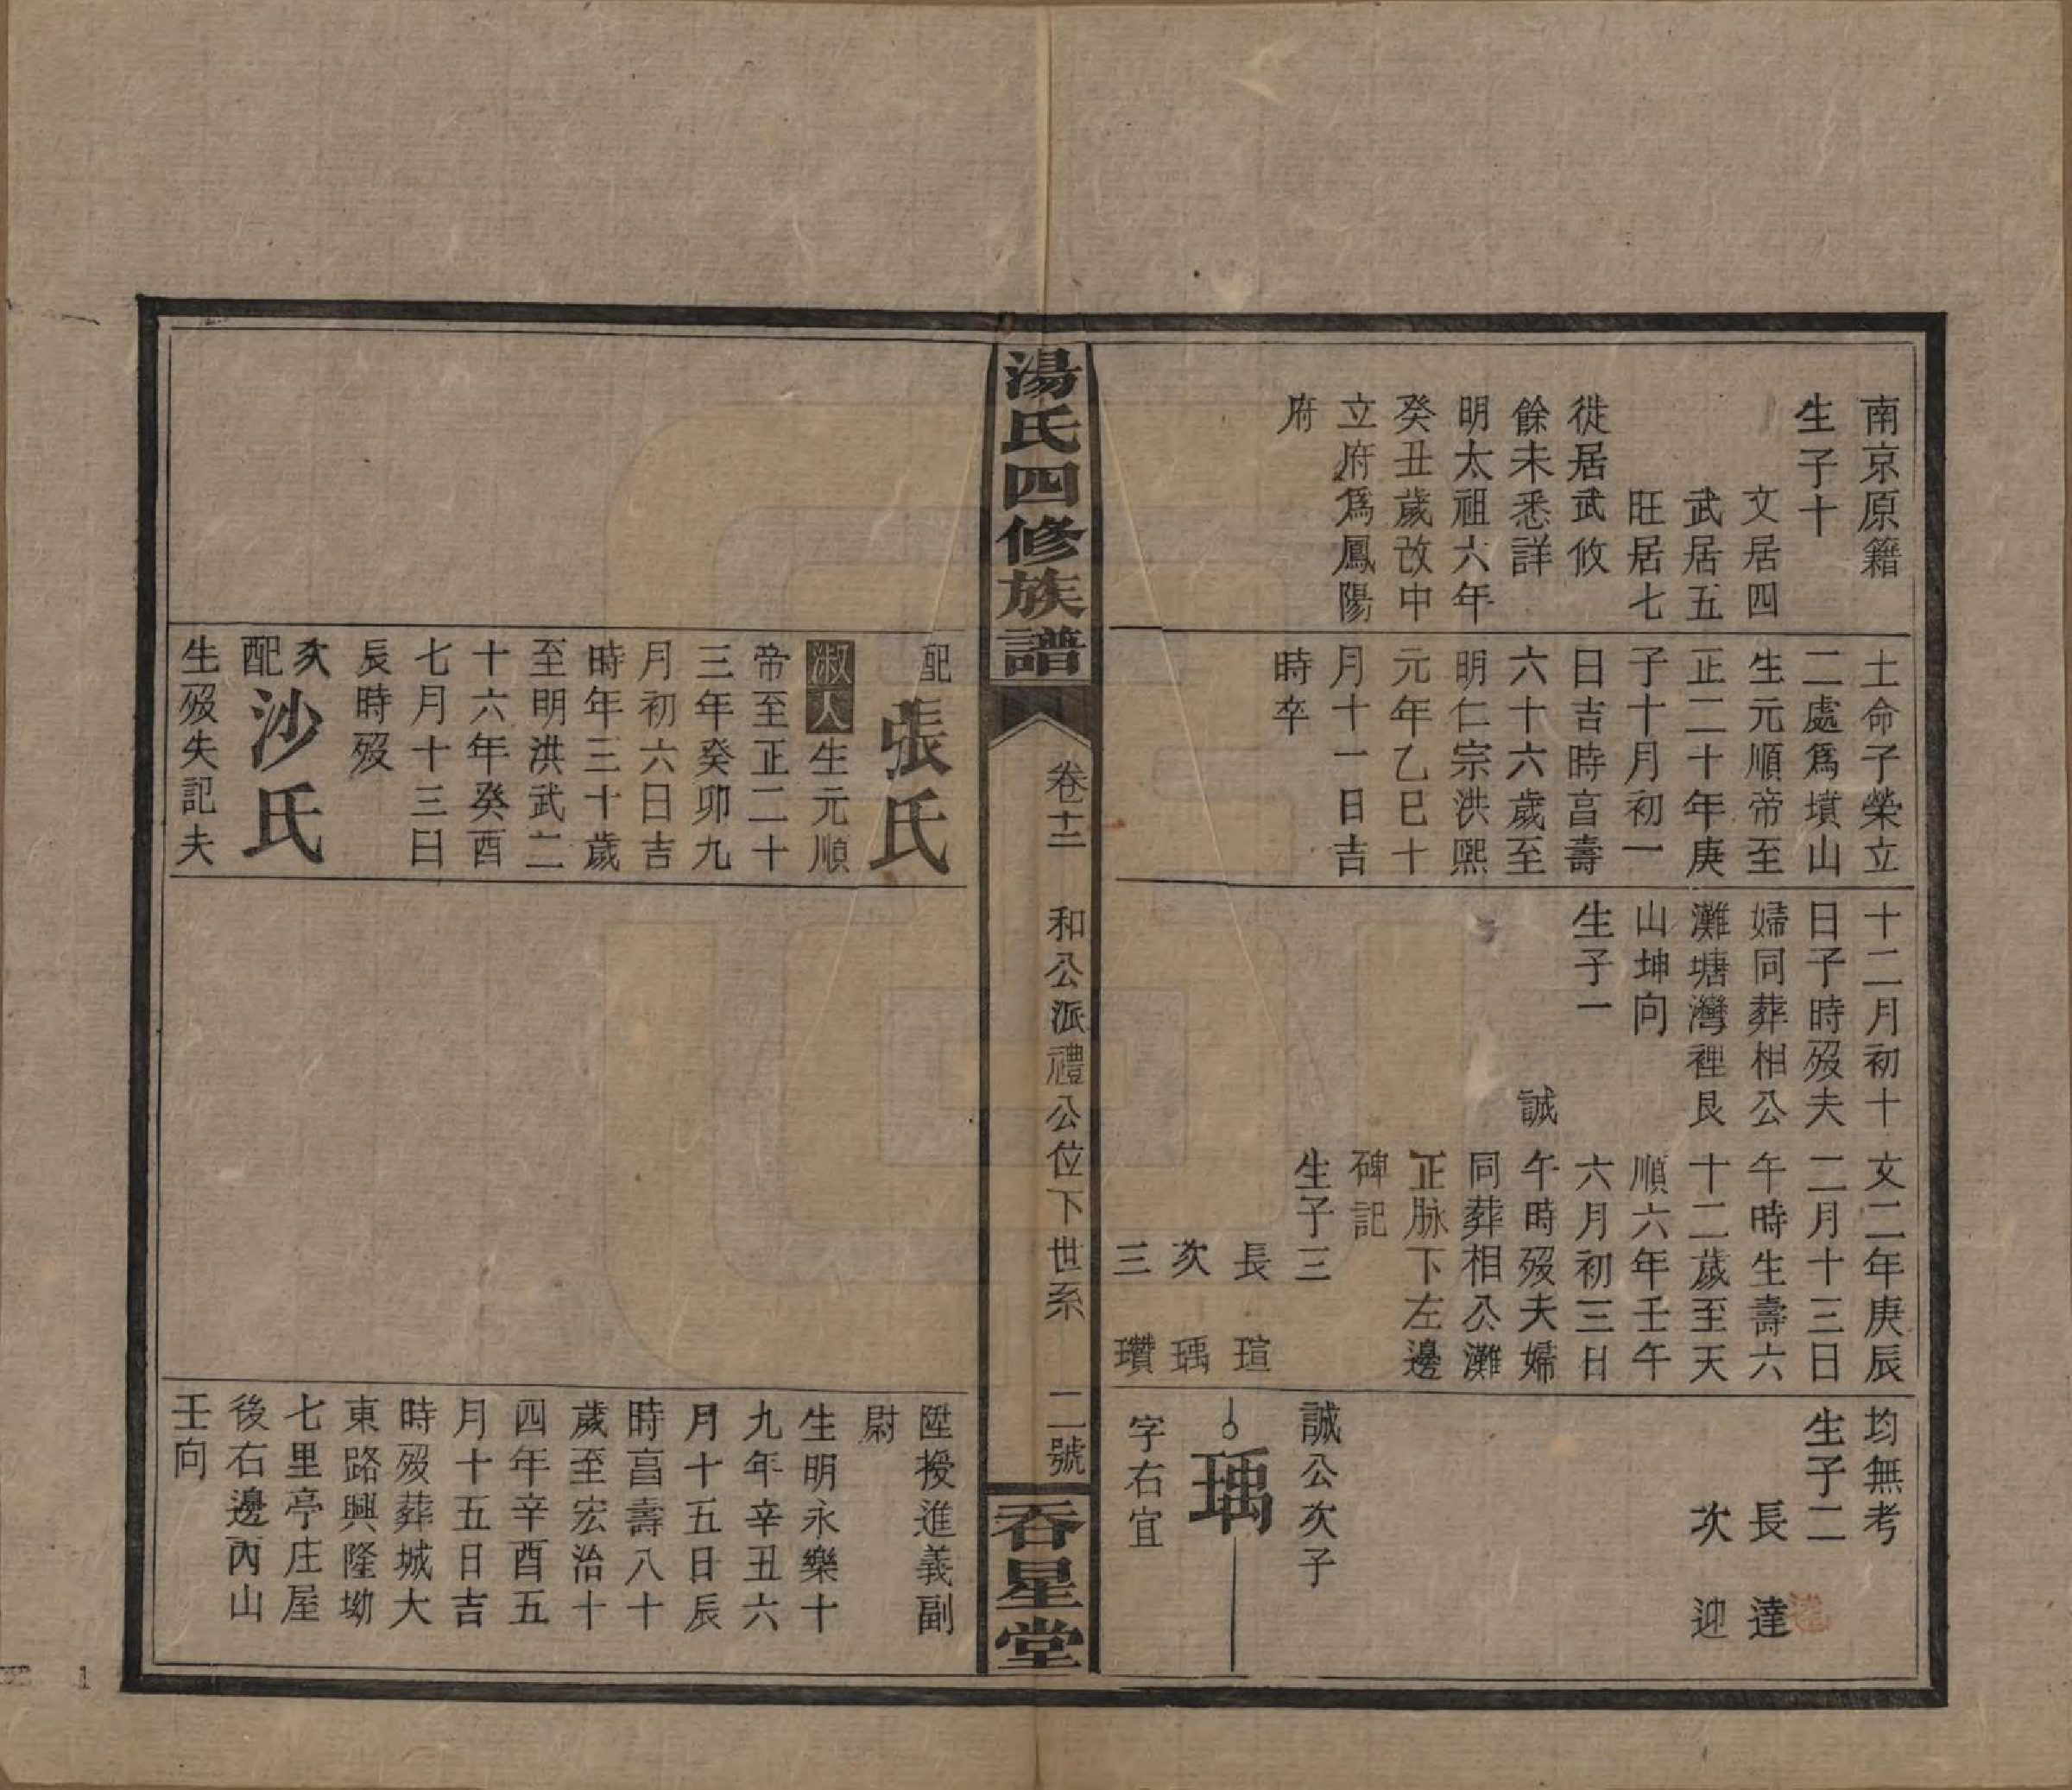 南京原籍
生子十
文居四
武居五
旺居七
徙居武攸
餘未悉詳
明太祖六年
癸丑歲改中
立府爲鳳陽
府
土命子榮立
二處爲墳山
生元順帝至
正二十年庚
子十月初一
日吉時亯壽
六十六歲至
明仁宗洪熙
元年乙巳十
月十一日吉
時卒
十二月初十
日子時歿夫
婦同葬相公
灘塘灣裡艮
山坤向
生子一
誠
文二年庚辰
二月十三日
午時生壽六
十二歲至天
順六年壬午
六月初三日
午時歿夫婦
同葬相公灘
正脉下左邊
碑記
生子三
長 瑄
次 瑀
三 瓚
均無考
生子二
長 達
次 迎
誠公次子
瑀
字右宜
湯氏四修族譜
卷十二 和公派禮公位下世系 二號
吞星堂
配張氏
淑人生元順
帝至正二十
三年癸卯九
月初六日吉
時年三十歲
至明洪武二
十六年癸酉
七月十三日
辰時歿
次配沙氏
生歿失記夫
陞授進義副
尉
生明永樂十
九年辛丑六
月十五日辰
時亯壽八十
歲至宏治十
四年辛酉五
月十五日吉
時歿葬城大
東路興隆坳
七里亭庄屋
後右邊丙山
壬向